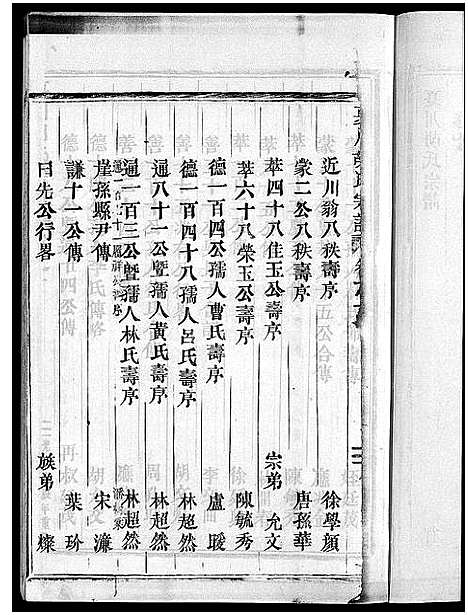 近川翁八秩壽序 徐學顏
蒙二公八秩壽序 唐孫華
萃四十八佳玉公壽序 宗弟 允文
萃六十八榮玉公壽序 陳毓秀
德一百四公孺人曹氏壽序 盧瑗
德一百四十八孺人呂氏壽序 林超然
通八十一公暨孺人黃氏壽序 林超然
通一百三公暨孺人林氏壽序 林超然
崖孫縣尹傳 宋濂
謙十一公傳 葉玠
日先公行畧 族弟 燦